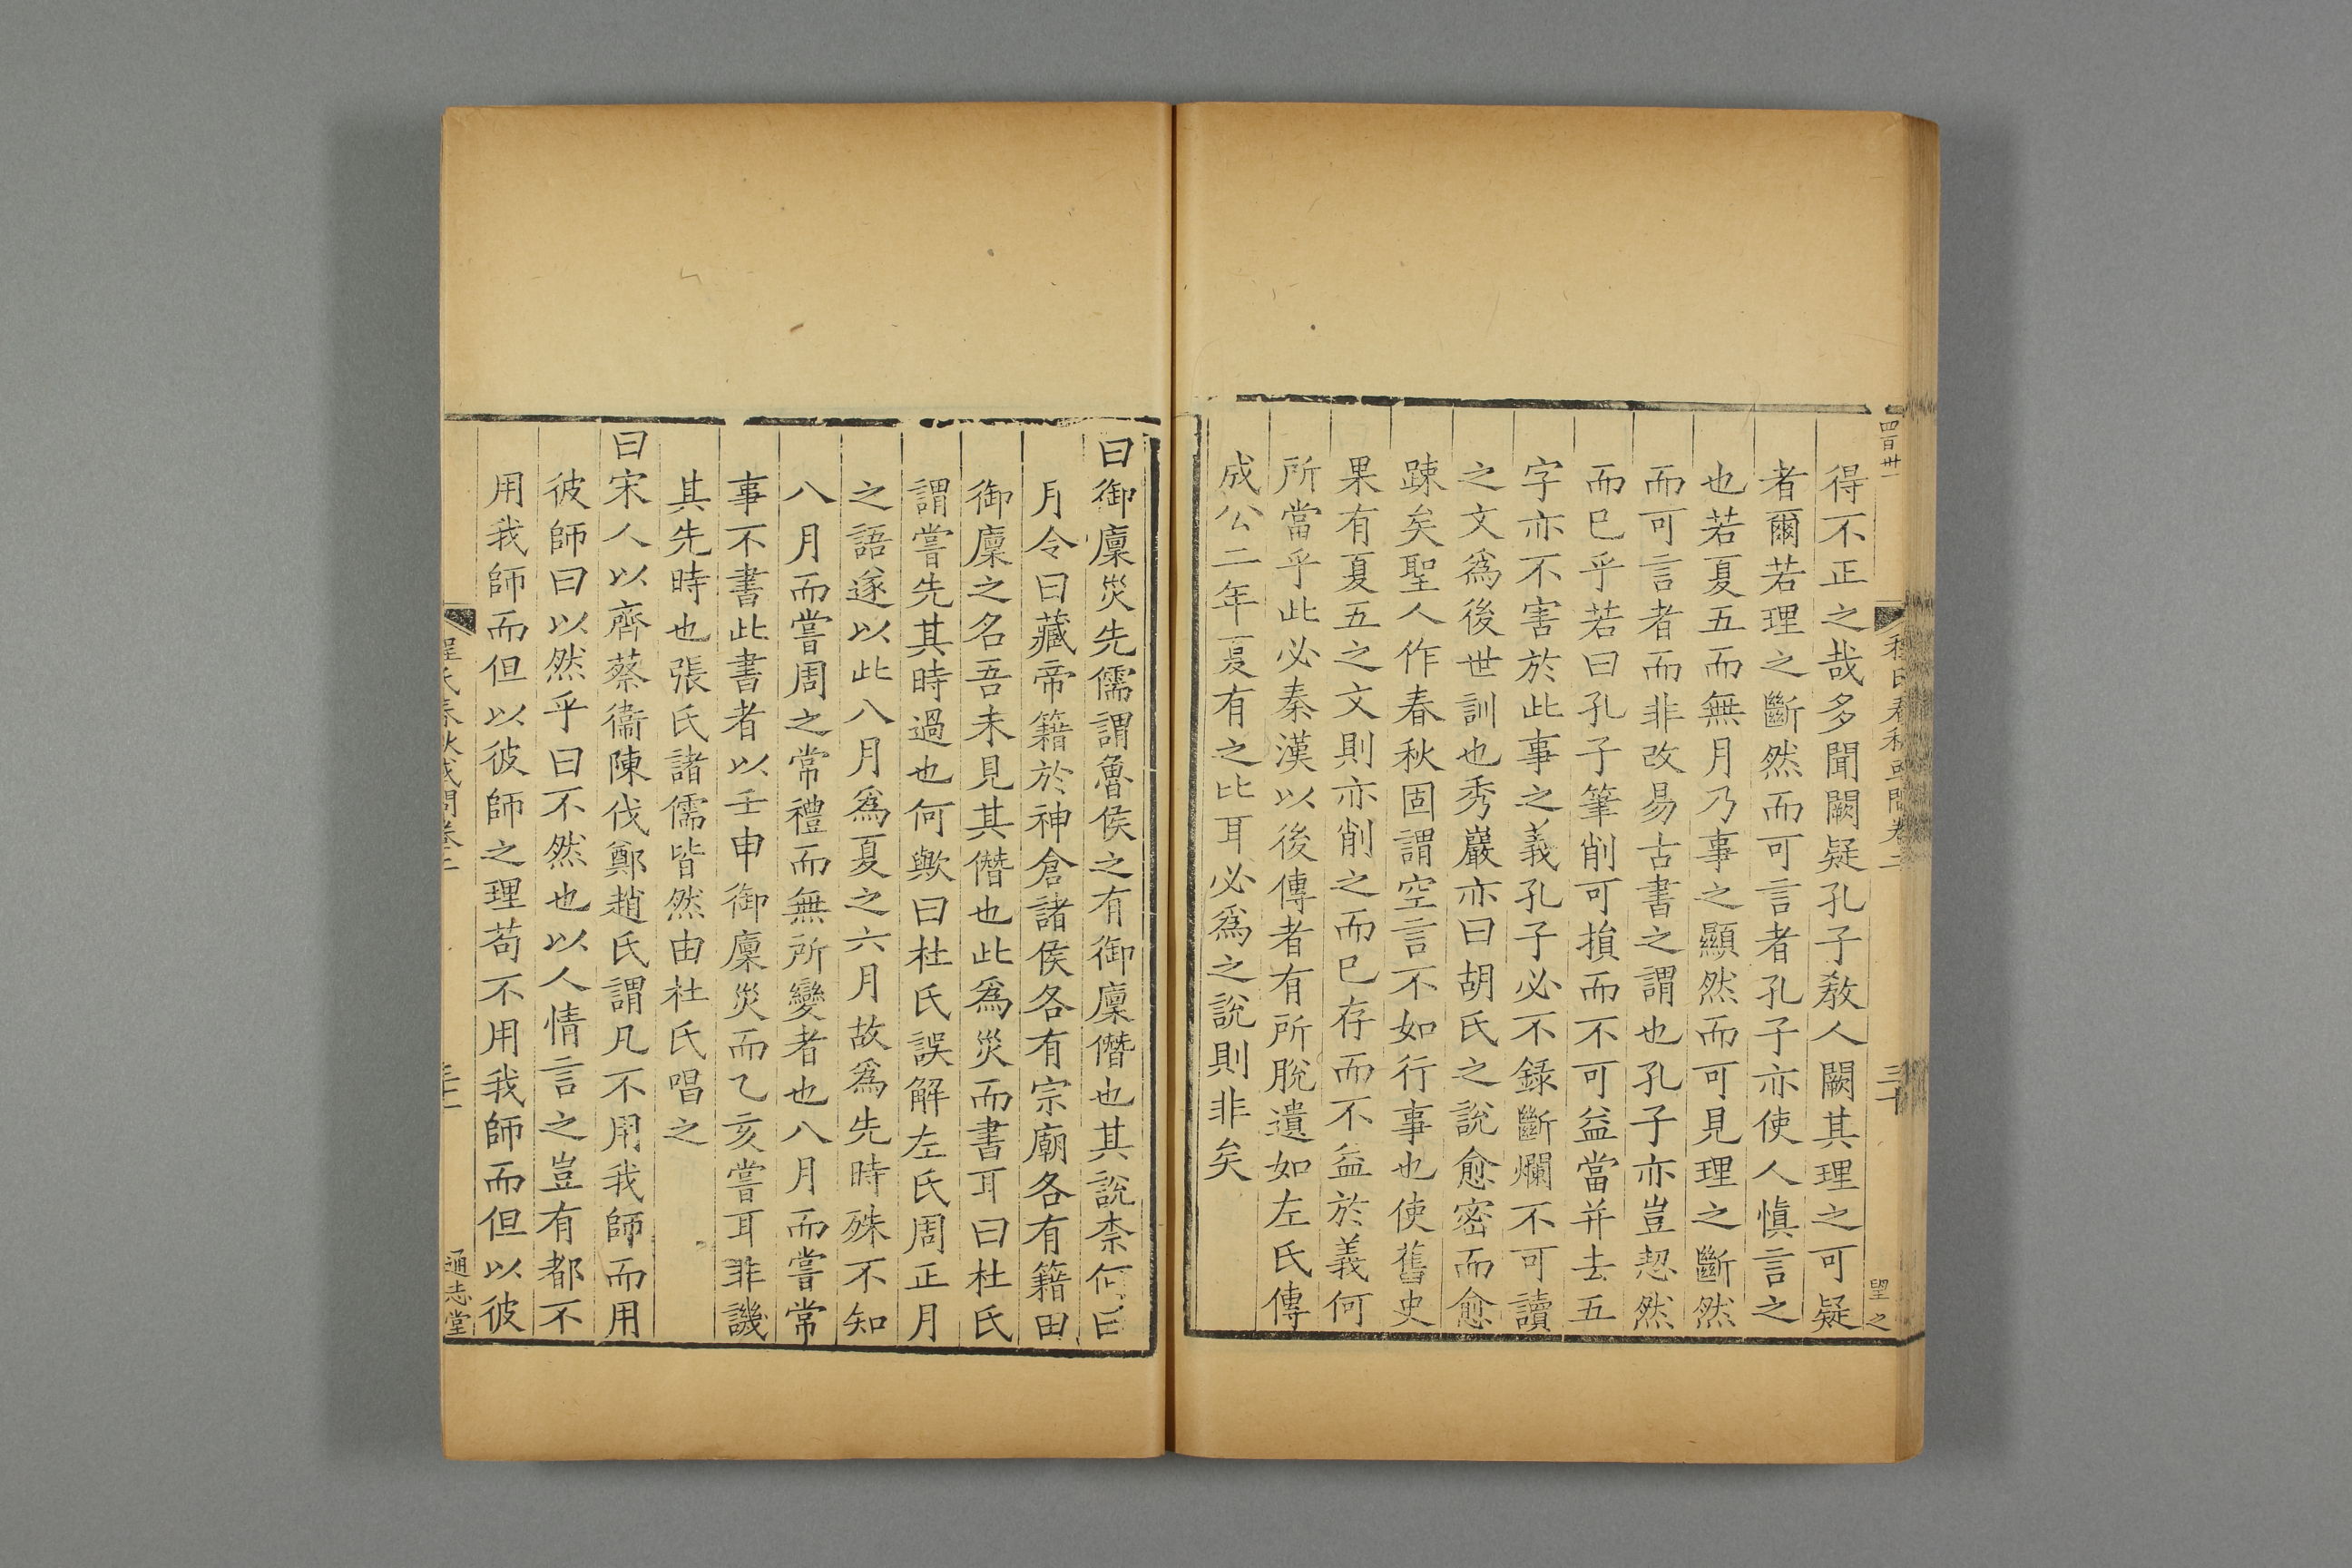 四百卅一
程氏春秋或問卷二
三十
望之
得不正之哉多聞闕疑孔子敎人闕其理之可疑
者爾若理之斷然而可言者孔子亦使人愼言之
也若夏五而無月乃事之顯然而可見理之斷然
而可言者而非改易古書之謂也孔子亦豈恝然
而已乎若曰孔子筆削可損而不可益當并去五
字亦不害於此事之義孔子必不錄斷爛不可讀
之文爲後世訓也秀巖亦曰胡氏之說愈密而愈
踈矣聖人作春秋固謂空言不如行事也使舊史
果有夏五之文則亦削之而已存而不益於義何
所當乎此必秦漢以後傳者有所脫遺如左氏傳
成公二年夏有之比耳必爲之說則非矣
曰御廩災先儒謂魯侯之有御廩僭也其說柰何曰
月令曰藏帝籍於神倉諸侯各有宗廟各有籍田
御廩之名吾未見其僭也此爲災而書耳曰杜氏
謂嘗先其時過也何歟曰杜氏誤解左氏周正月
之語遂以此八月爲夏之六月故爲先時殊不知
八月而嘗周之常禮而無所變者也八月而嘗常
事不書此書者以壬申御廩災而乙亥嘗耳非譏
其先時也張氏諸儒皆然由杜氏唱之
曰宋人以齊蔡衞陳伐鄭趙氏謂凡不用我師而用
彼師曰以然乎曰不然也以人情言之豈有都不
用我師而但以彼師之理苟不用我師而但以彼
程氏春秋或問卷二
三十一
通志堂